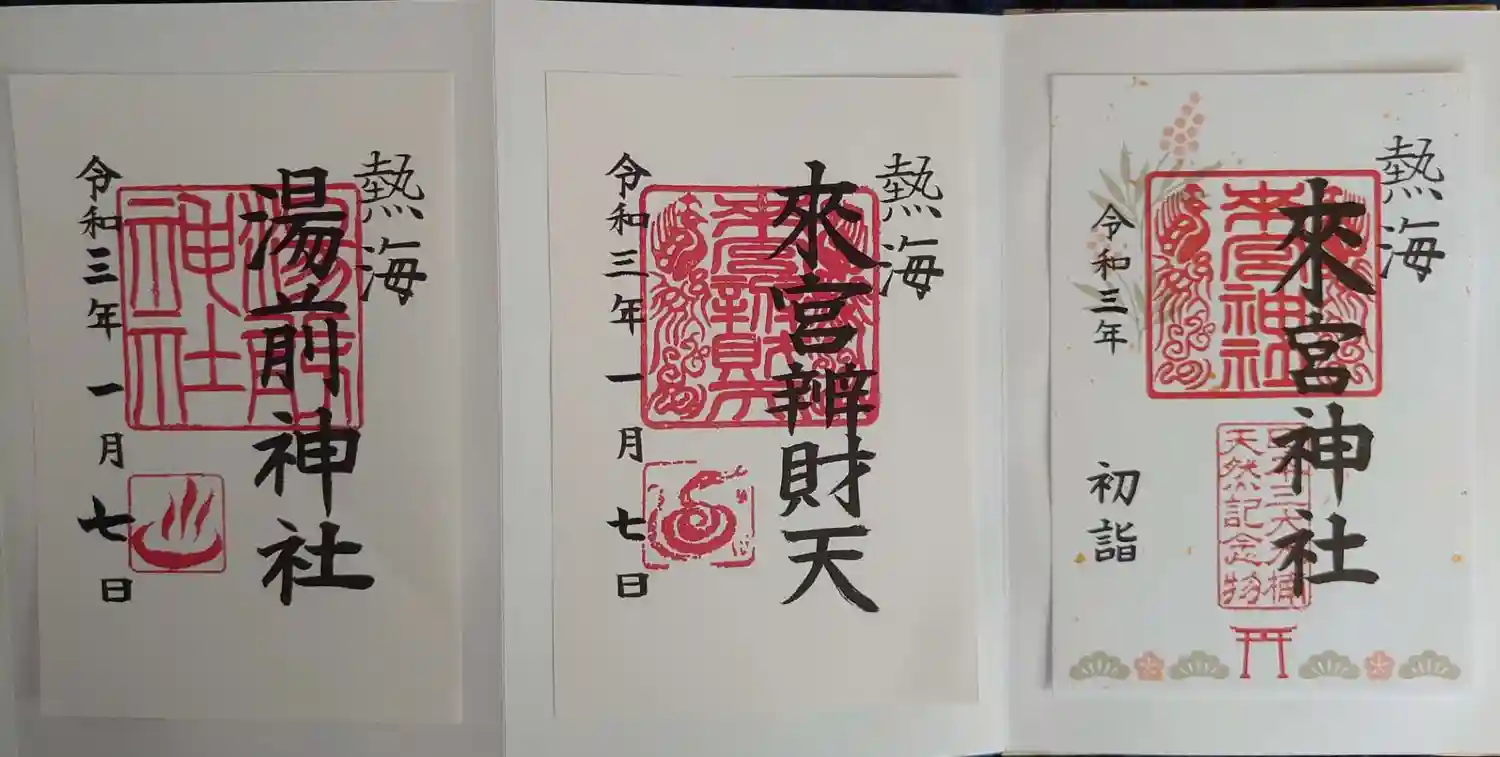 熱海
來宮神社
來宮神社
天然記念物
令和三年
初詣
熱海
來宮辨財天
令和三年一月七日
熱海
湯前神社
湯前神社
令和三年一月七日